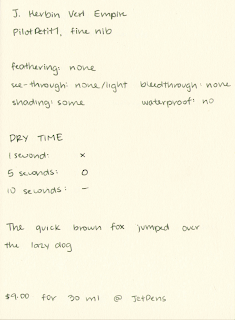 J. Herbin Vert Empire
Pilot Petit1, fine nib
feathering: none
see-through: none/light bleedthrough: none
shading: some waterproof: no
DRY TIME
1 second: x
5 seconds: O
10 seconds: –
The quick brown fox jumped over
the lazy dog
$9.00 for 30 ml @ JetPens